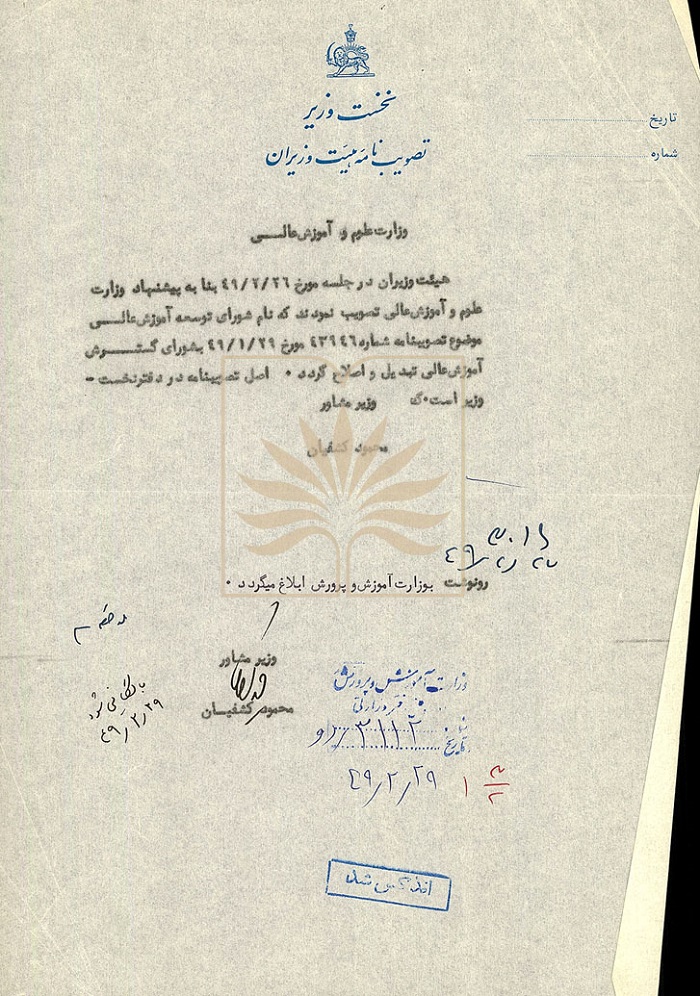 نخست وزیر
تصویب نامه هیئت وزیران
تاریخ
شماره
وزارت علوم و آموزش عالی
هیئت وزیران در جلسه مورخ ۴۹/۲/۲۶ بنا به پیشنهاد وزارت
علوم و آموزش عالی تصویب نمودند که نام شورای توسعه آموزش عالی
موضوع تصویبنامه شماره ۴۳۹۴۶ مورخ ۴۹/۱/۲۹ بشورای گسترش
آموزش عالی تبدیل و اصلاح گردد ۰ اصل تصویبنامه در دفتر نخست -
وزیر است ۰گ وزیر مشاور
محمود کشفیان
رونوشت بوزارت آموزش و پرورش ابلاغ میگردد ۰
وزیر مشاور
محمود کشفیان
بایگانی شود
۴۹/۲/۲۹
وزارت آموزش و پرورش
دفتر وزارتی
شماره ۳۱۱۲
تاریخ
۴۹/۲/۲۹
اندکس شد